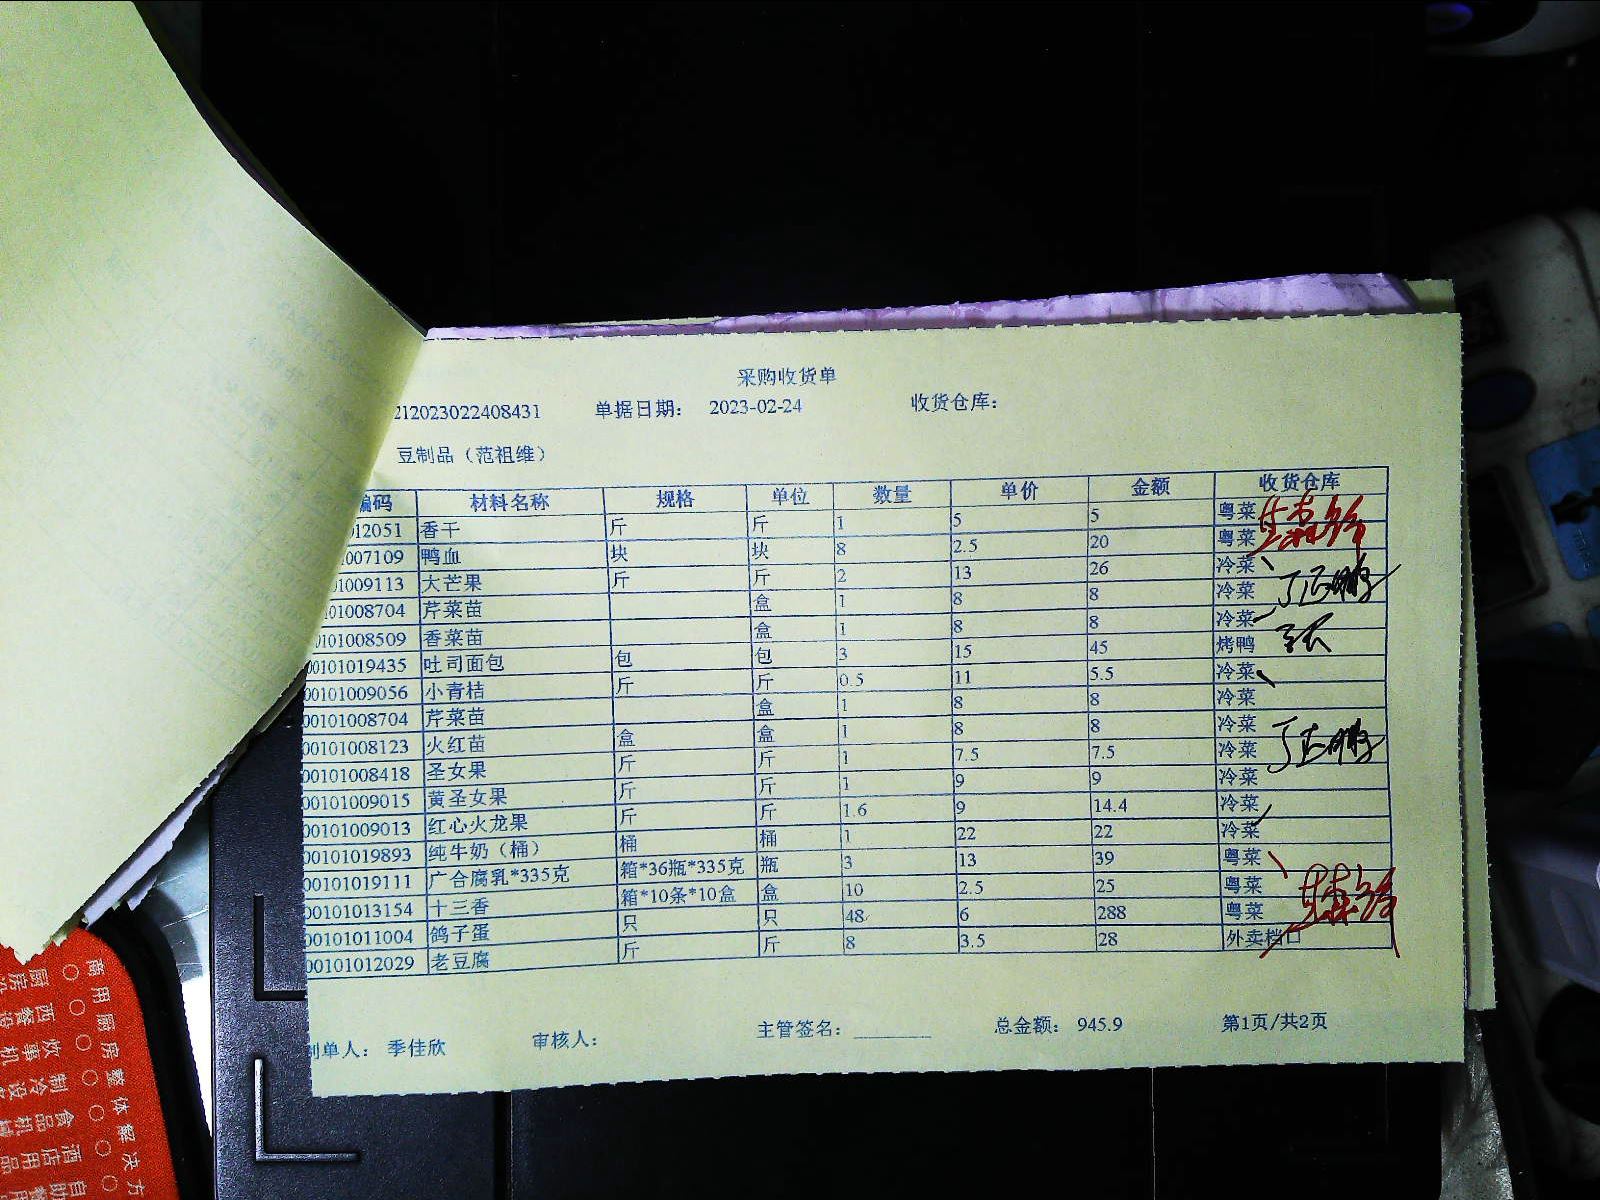 采购收货单
212023022408431 单据日期： 2023-02-24 收货仓库：
豆制品（范祖维）
编码 材料名称 规格 单位 数量 单价 金额 收货仓库
12051 香干 斤 斤 1 5 5 粤菜
007109 鸭血 块 块 8 2.5 20 粤菜
01009113 大芒果 斤 斤 2 13 26 冷菜
0101008704 芹菜苗 盒 1 8 8 冷菜
0101008509 香菜苗 盒 1 8 8 冷菜
00101019435 吐司面包 包 包 3 15 45 烤鸭
00101009056 小青桔 斤 斤 0.5 11 5.5 冷菜
00101008704 芹菜苗 盒 1 8 8 冷菜
00101008123 火红苗 盒 盒 1 8 8 冷菜
00101008418 圣女果 斤 斤 1 7.5 7.5 冷菜
00101009015 黄圣女果 斤 斤 1 9 9 冷菜
00101009013 红心火龙果 斤 斤 1.6 9 14.4 冷菜
00101019893 纯牛奶（桶） 桶 桶 1 22 22 冷菜
00101019111 广合腐乳*335克 箱*36瓶*335克 瓶 3 13 39 粤菜
00101013154 十三香 箱*10条*10盒 盒 10 2.5 25 粤菜
00101011004 鸽子蛋 只 只 48 6 288 粤菜
00101012029 老豆腐 斤 斤 8 3.5 28 外卖档口
制单人： 季佳欣 审核人： 主管签名： 总金额： 945.9 第1页/共2页
商用厨房整体解决方
厨房设
西餐设
炊事机
制冷设备
食品机械
酒店用品
自助餐用